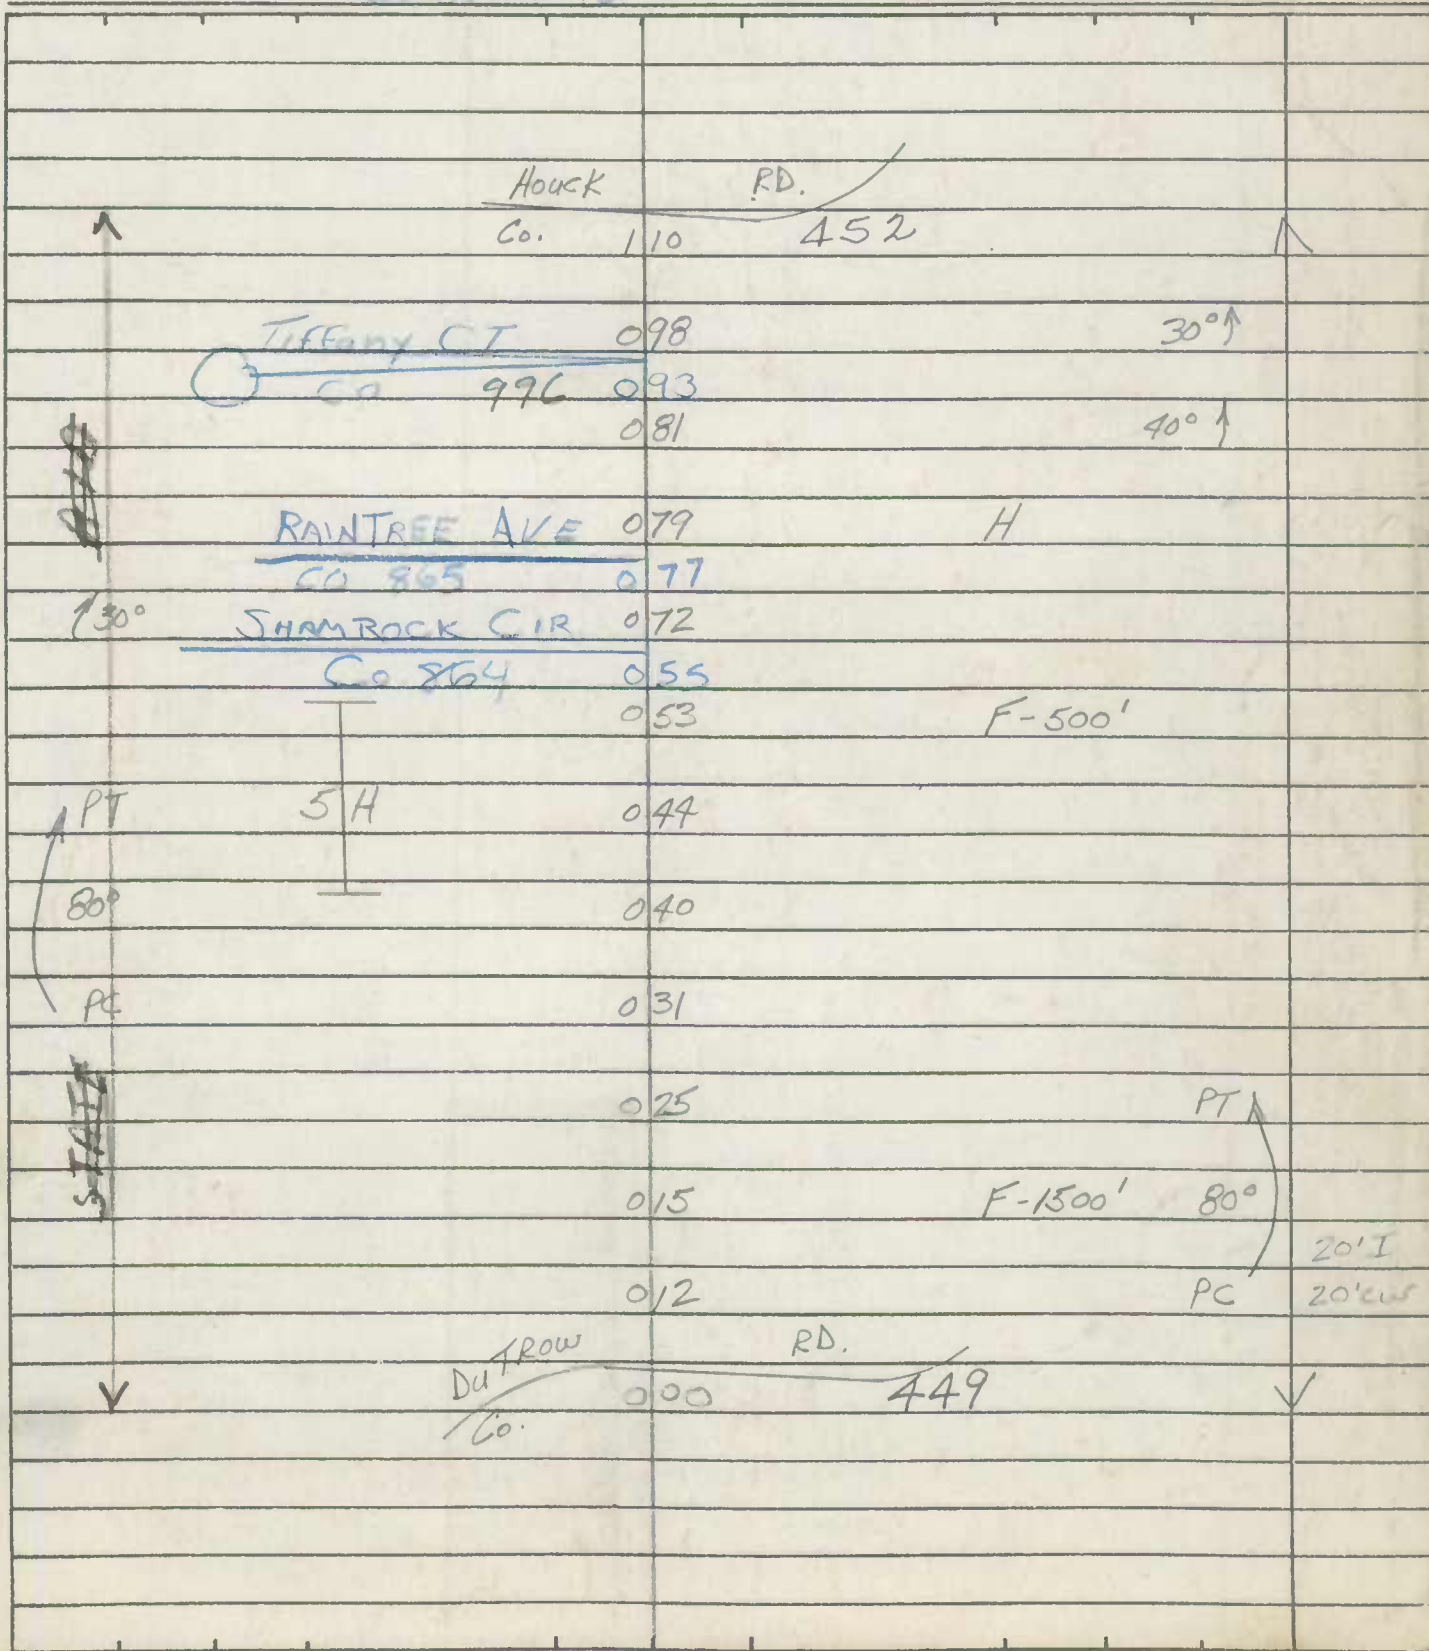 Houck RD.
Co. 1 10 452
Tiffany CT 0 98 30°
Co 996 0 93
0 81 40°
RAINTREE AVE 0 79 H
CO 865 0 77
30° SHAMROCK CIR 0 72
Co 864 0 55
0 53 F-500'
PT 5 H 0 44
80° 0 40
PC 0 31
STATE
0 25 PT
0 15 F-1500' 80°
20' I
0 12 PC 20'
DuTROW RD.
0 00 449
Co.